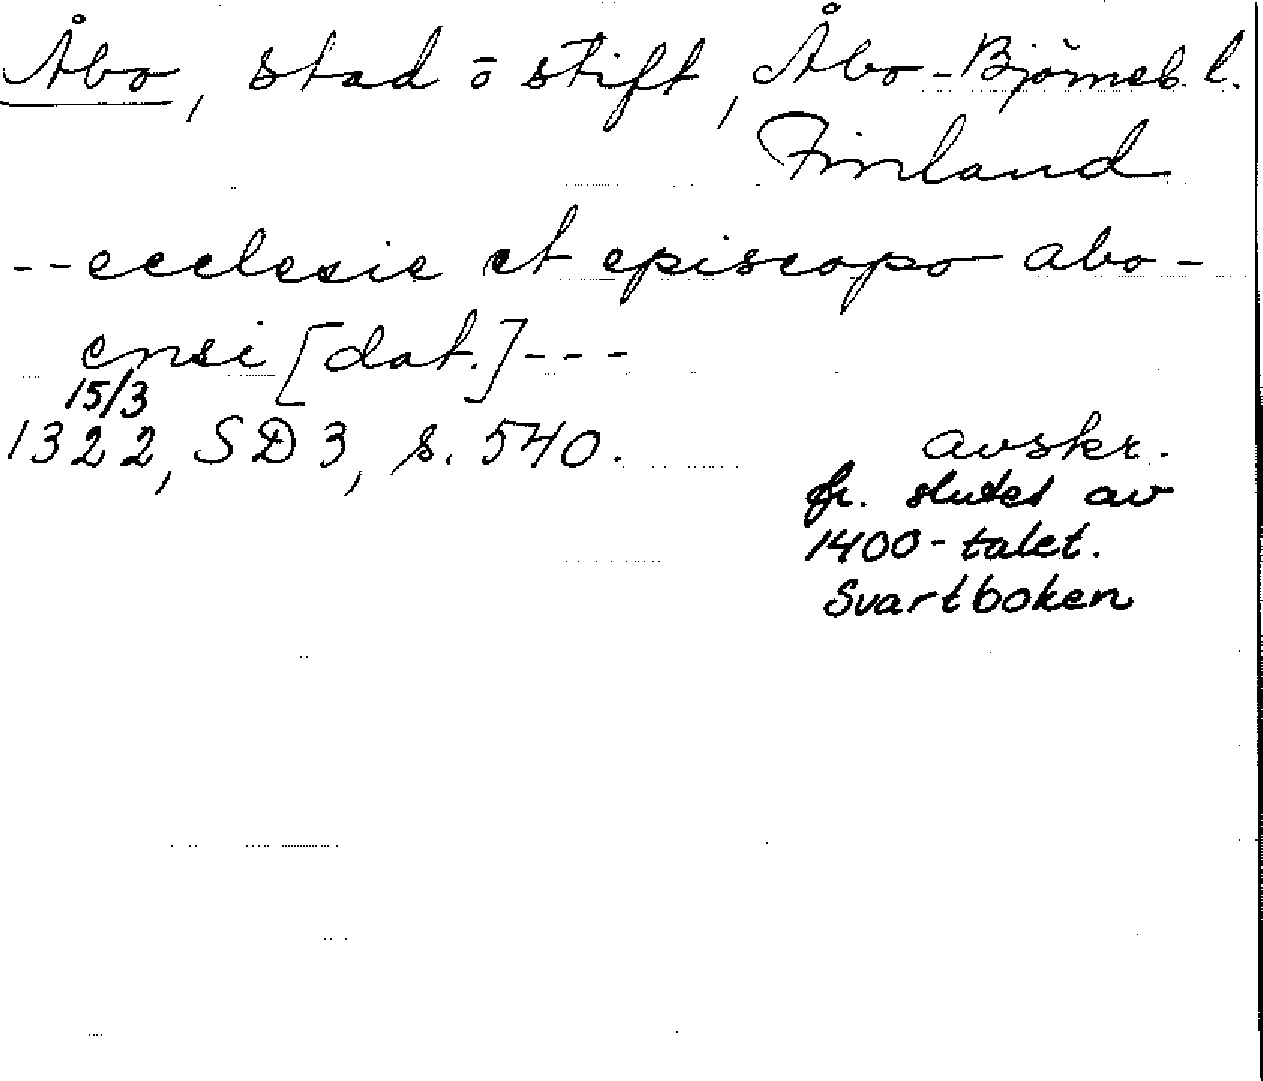 Åbo, stad o stift, Åbo-Björneb. l.
Finland
--ecclesie et episcopo abo-
ensi [dat.]---
15/3
1322, SD 3, s. 540.
avskr.
fr. slutet av
1400-talet.
Svartboken